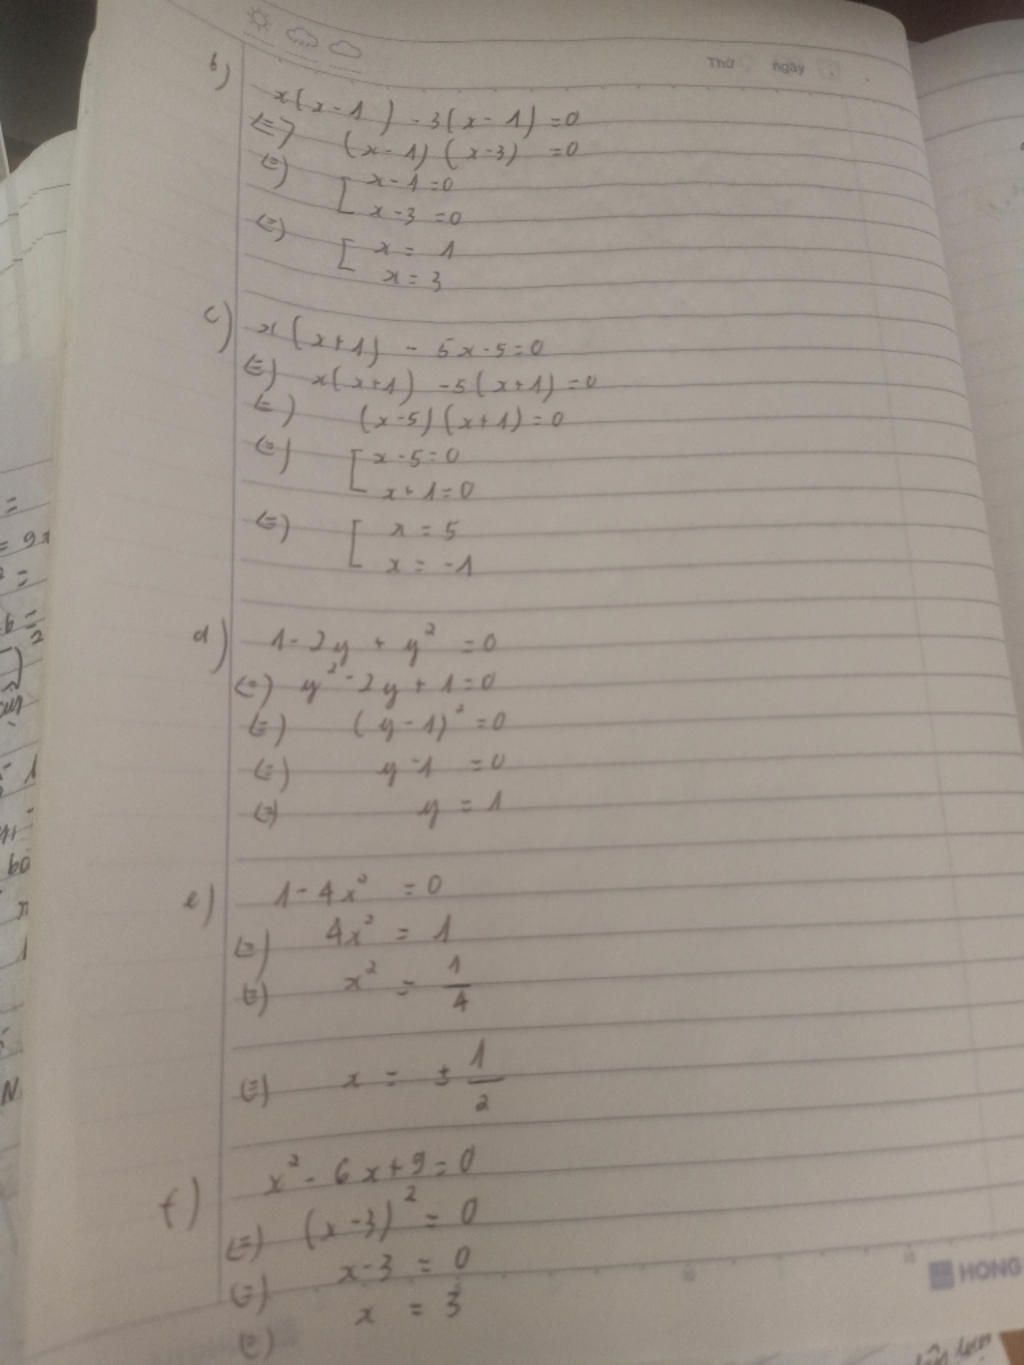 Thứ ngày
b)
x(x-1) - 3(x-1) = 0
<=> (x-1)(x-3) = 0
<=> [ x-1=0
x-3=0
<=> [ x = 1
x = 3
c) x(x+1) - 5x-5=0
<=> x(x+1) -5(x+1)=0
<=> (x-5)(x+1)=0
<=> [ x-5=0
x+1=0
<=> [ x = 5
x = -1
d) 1-2y + y² = 0
<=> y²-2y+1=0
<=> (y-1)²=0
<=> y-1 = 0
<=> y = 1
e) 1-4x² = 0
<=> 4x² = 1
<=> x² = 1/4
<=> x = ± 1/2
f) x²-6x+9=0
<=> (x-3)² = 0
<=> x-3 = 0
<=> x = 3
10
HONG